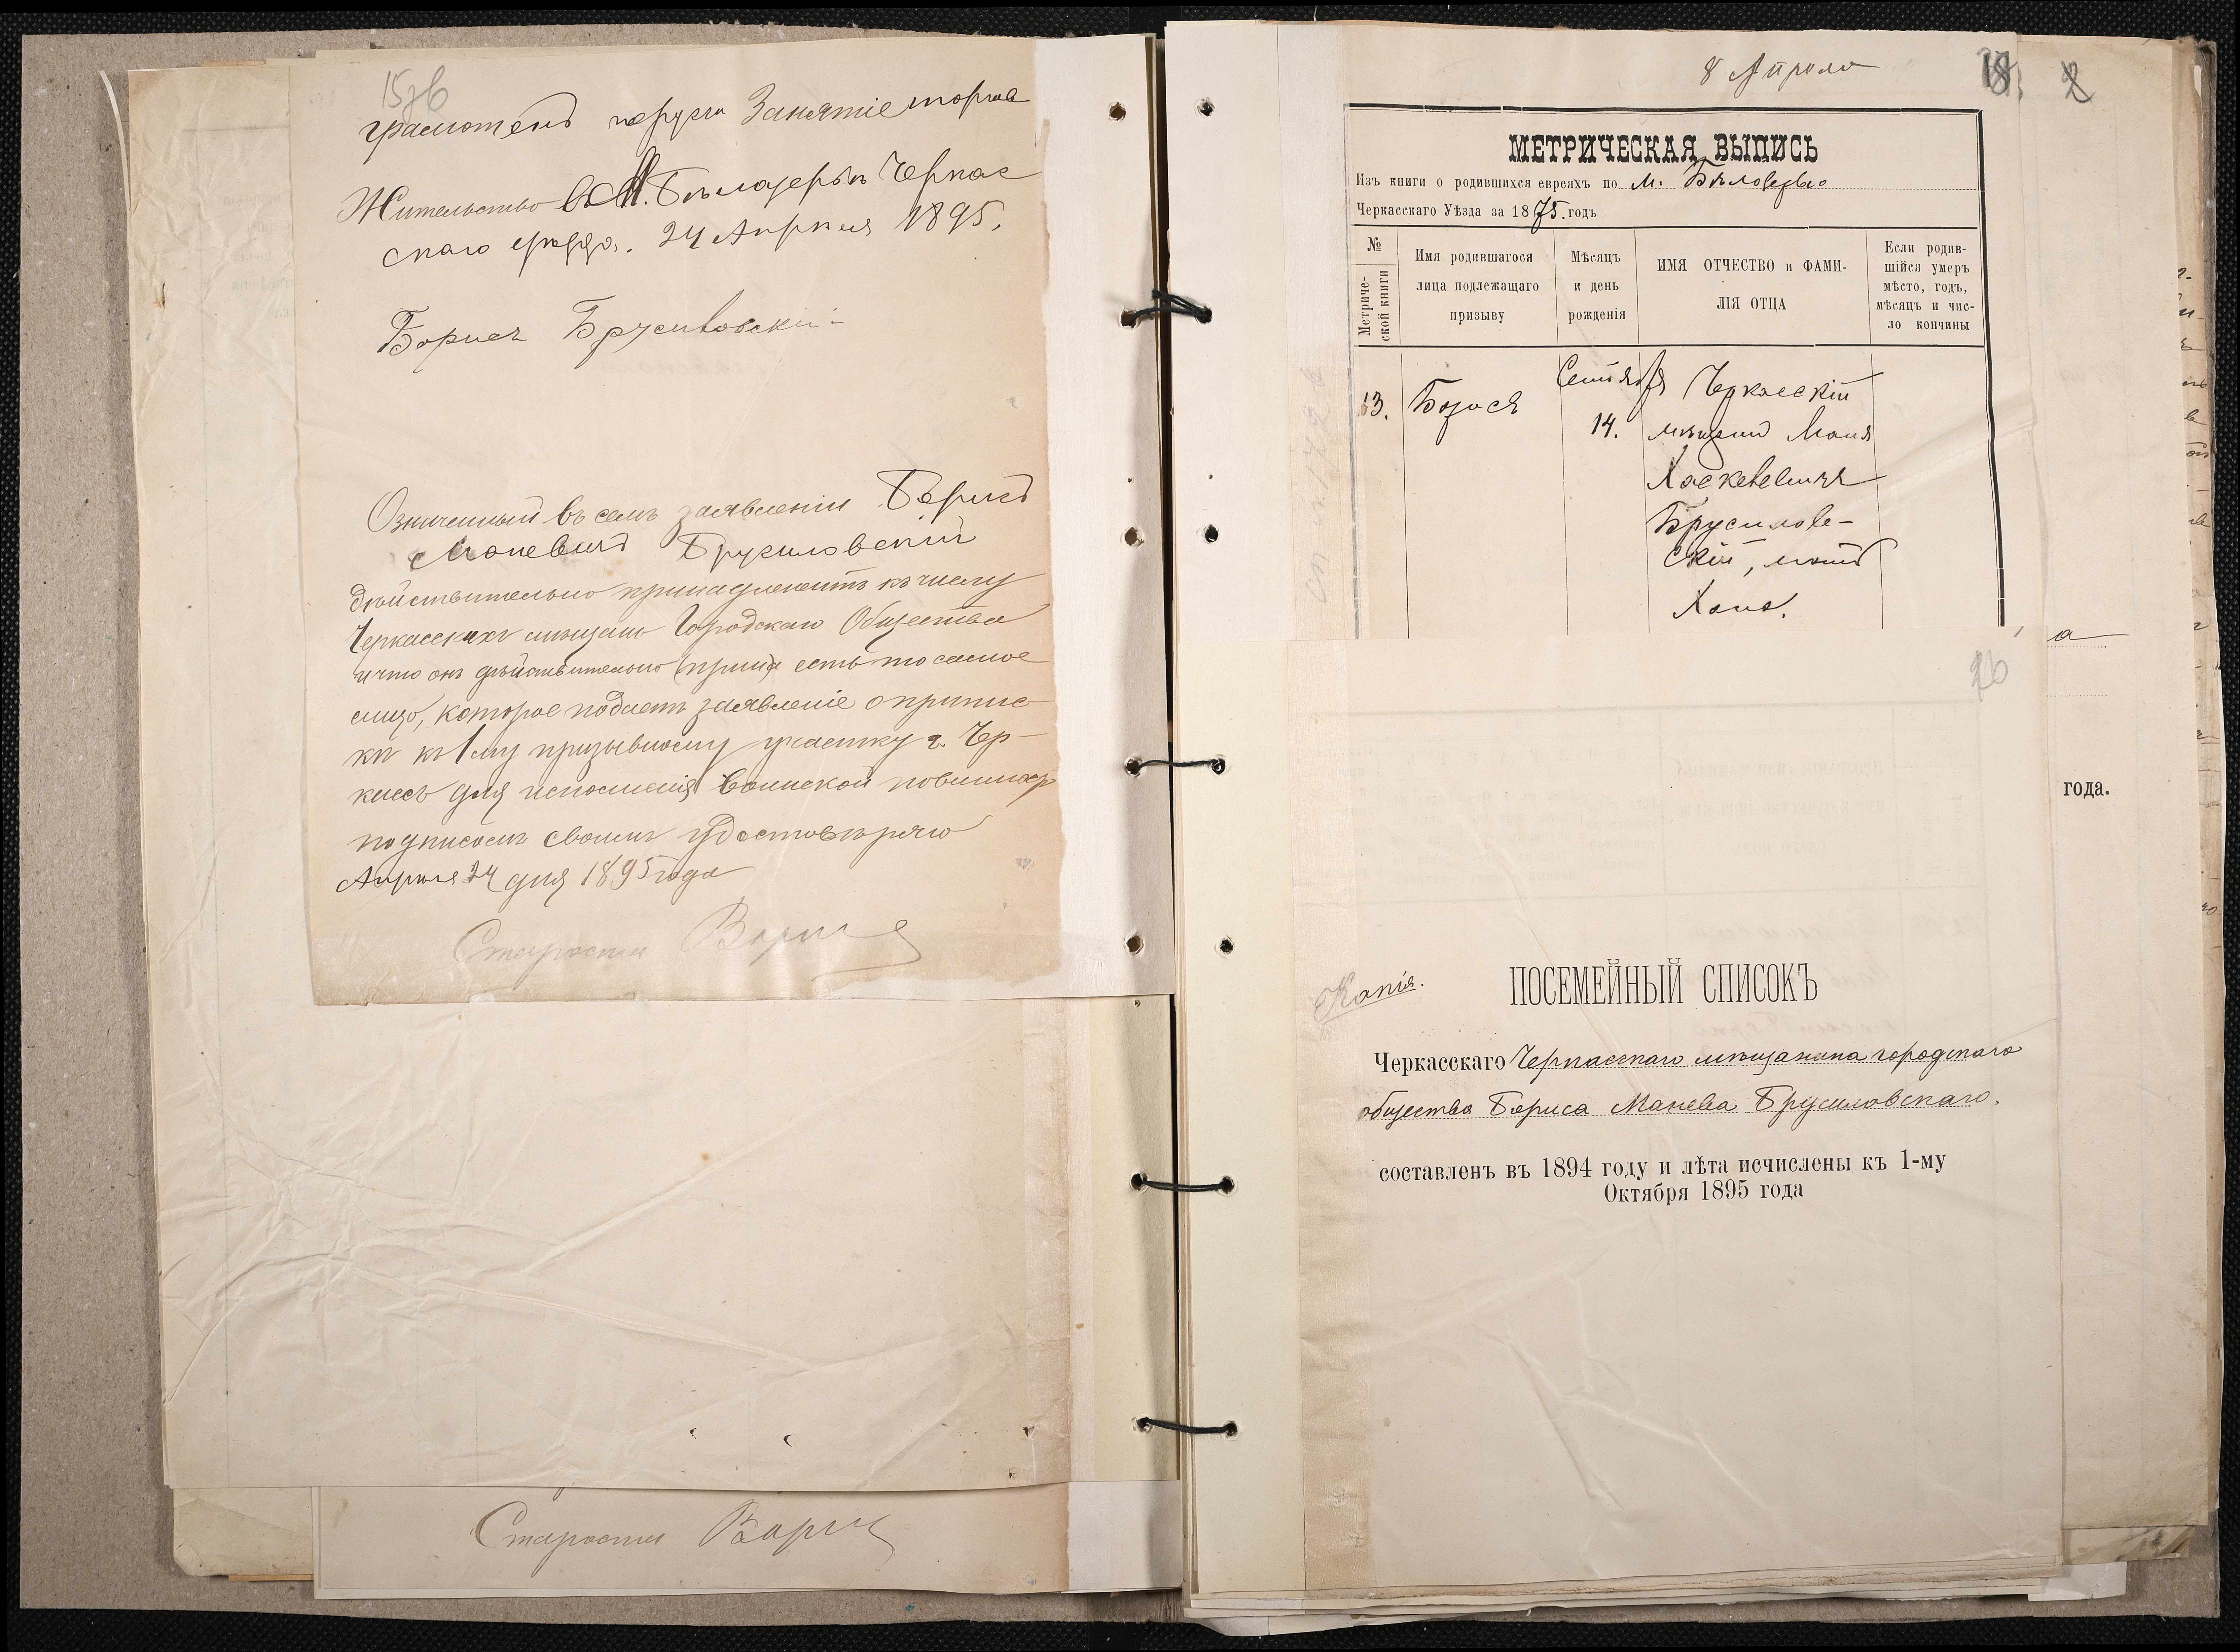 15зв
грамотенъ Занятіе торгов
Жительство въ М. Бѣлозерьѣ Черкас
скаго уѣзда. 24 Апрѣля 1895.
Борисъ Брусиловскій
Означенный въ семъ заявленіи Борисъ
Моневичъ Брусиловскій
дѣйствительно принадлежитъ къ числу
Черкасскихъ мѣщанъ Городскаго Общества
и что онъ дѣйствительно есть то самое
лицо, которое подаетъ заявленіе о припис
кѣ къ 1му призывному участку г. Чер-
кассъ для исполненія воинской повинности
подписомъ своимъ удостовѣряю
Апрѣля 24 дня 1895 года
Староста
Староста
8 Апрѣля
18.
МЕТРИЧЕСКАЯ ВЫПИСЬ
Изъ книги о родившихся евреяхъ по м. Бѣлозерью
Черкасскаго Уѣзда за 1875. годъ
№ Метриче-
ской книги
Имя родившагося
лица подлежащаго
призыву
Мѣсяцъ
и день
рожденія
ИМЯ ОТЧЕСТВО и ФАМИ-
ЛІЯ ОТЦА
Если родив-
шійся умеръ
мѣсто, годъ,
мѣсяцъ и чис-
ло кончины
13. Борисъ
Сентября
14.
Черкасскій
мѣщанинъ Моня
Хаскелевичъ
Брусилов-
скій, мать
Хана.
а
16
года.
Копія.
ПОСЕМЕЙНЫЙ СПИСОКЪ
Черкасскаго Черкасскаго мѣщанина городскаго
общества Бориса Манева Брусиловскаго.
составленъ въ 1894 году и лѣта исчислены къ 1-му
Октября 1895 года